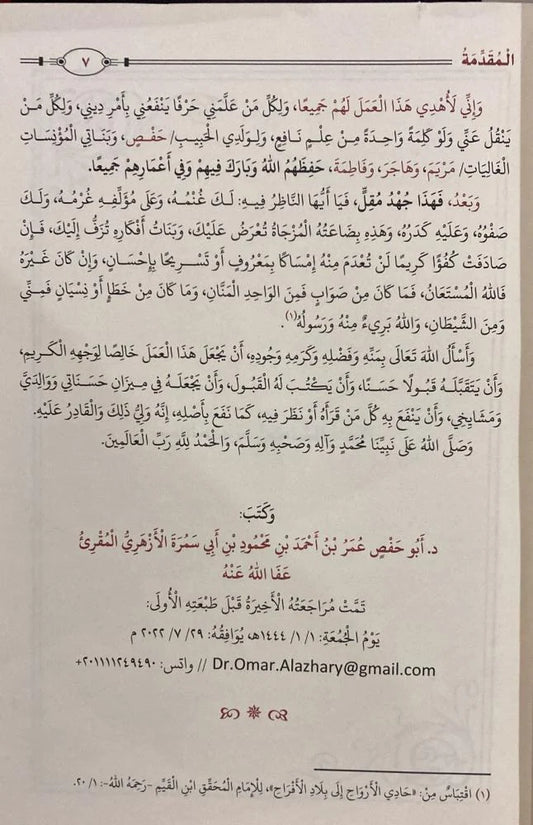 الْمُقَدِّمَةُ
٧
وَإِنِّي لَأُهْدِي هَذَا الْعَمَلَ لَهُمْ جَمِيعًا، وَلِكُلِّ مَنْ عَلَّمَنِي حَرْفًا يَنْفَعُنِي بِأَمْرِ دِينِي، وَلِكُلِّ مَنْ
يَنْقُلُ عَنِّي وَلَوْ كَلِمَةً وَاحِدَةً مِنْ عِلْمٍ نَافِعٍ، وَلِوَلَدِي الْحَبِيبِ/ حَفْصٍ، وَبَنَاتِي الْمُؤْنِسَاتِ
الْغَالِيَاتِ/ مَرْيَمَ، وَهَاجَرَ، وَفَاطِمَةَ، حَفِظَهُمُ اللهُ وَبَارَكَ فِيهِمْ وَفِي أَعْمَارِهِمْ جَمِيعًا.
وَبَعْدُ، فَهَذَا جُهْدُ مُقِلٍّ، فَيَا أَيُّهَا النَّاظِرُ فِيهِ: لَكَ غُنْمُهُ، وَعَلَى مُؤَلِّفِهِ غُرْمُهُ، وَلَكَ
صَفْوُهُ، وَعَلَيْهِ كَدَرُهُ، وَهَذِهِ بِضَاعَتُهُ الْمُزْجَاةُ تُعْرَضُ عَلَيْكَ، وَبَنَاتُ أَفْكَارِهِ تُزَفُّ إِلَيْكَ، فَإِنْ
صَادَفَتْ كُفُؤًا كَرِيمًا لَنْ تُعْدَمَ مِنْهُ إِمْسَاكًا بِمَعْرُوفٍ أَوْ تَسْرِيحًا بِإِحْسَانٍ، وَإِنْ كَانَ غَيْرَهُ
فَاللهُ الْمُسْتَعَانُ، فَمَا كَانَ مِنْ صَوَابٍ فَمِنَ الْوَاحِدِ الْمَنَّانِ، وَمَا كَانَ مِنْ خَطَإٍ أَوْ نِسْيَانٍ فَمِنِّي
وَمِنَ الشَّيْطَانِ، وَاللهُ بَرِيءٌ مِنْهُ وَرَسُولُهُ(١).
وَأَسْأَلُ اللهَ تَعَالَى بِمَنِّهِ وَفَضْلِهِ وَكَرَمِهِ وَجُودِهِ، أَنْ يَجْعَلَ هَذَا الْعَمَلَ خَالِصًا لِوَجْهِهِ الْكَرِيمِ،
وَأَنْ يَتَقَبَّلَهُ قَبُولًا حَسَنًا، وَأَنْ يَكْتُبَ لَهُ الْقَبُولَ، وَأَنْ يَجْعَلَهُ فِي مِيزَانِ حَسَنَاتِي وَوَالِدَيَّ
وَمَشَايِخِي، وَأَنْ يَنْفَعَ بِهِ كُلَّ مَنْ قَرَأَهُ أَوْ نَظَرَ فِيهِ، كَمَا نَفَعَ بِأَصْلِهِ، إِنَّهُ وَلِيُّ ذَلِكَ وَالْقَادِرُ عَلَيْهِ.
وَصَلَّى اللهُ عَلَى نَبِيِّنَا مُحَمَّدٍ وَآلِهِ وَصَحْبِهِ وَسَلَّمَ، وَالْحَمْدُ لِلَّهِ رَبِّ الْعَالَمِينَ.
وَكَتَبَ:
د. أَبُو حَفْصٍ عُمَرُ بْنُ أَحْمَدَ بْنِ مَحْمُودِ بْنِ أَبِي سَمُرَةَ الْأَزْهَرِيُّ الْمُقْرِئُ
عَفَا اللهُ عَنْهُ
تَمَّتْ مُرَاجَعَتُهُ الْأَخِيرَةُ قَبْلَ طَبْعَتِهِ الْأُولَى:
يَوْمُ الْجُمُعَةِ: ١/ ١/ ١٤٤٤هـ، يُوَافِقُهُ: ٢٩/ ٧/ ٢٠٢٢ م
Dr.Omar.Alazhary@gmail.com // واتس: ٢٠١١١١٢٤٩٤٩٠+
(١) اقْتِبَاسٌ مِنْ: «حَادِي الْأَرْوَاحِ إِلَى بِلَادِ الْأَفْرَاحِ»، لِلْإِمَامِ الْمُحَقِّقِ ابْنِ الْقَيِّمِ -رَحِمَهُ اللهُ-: ١/ ٢٠.